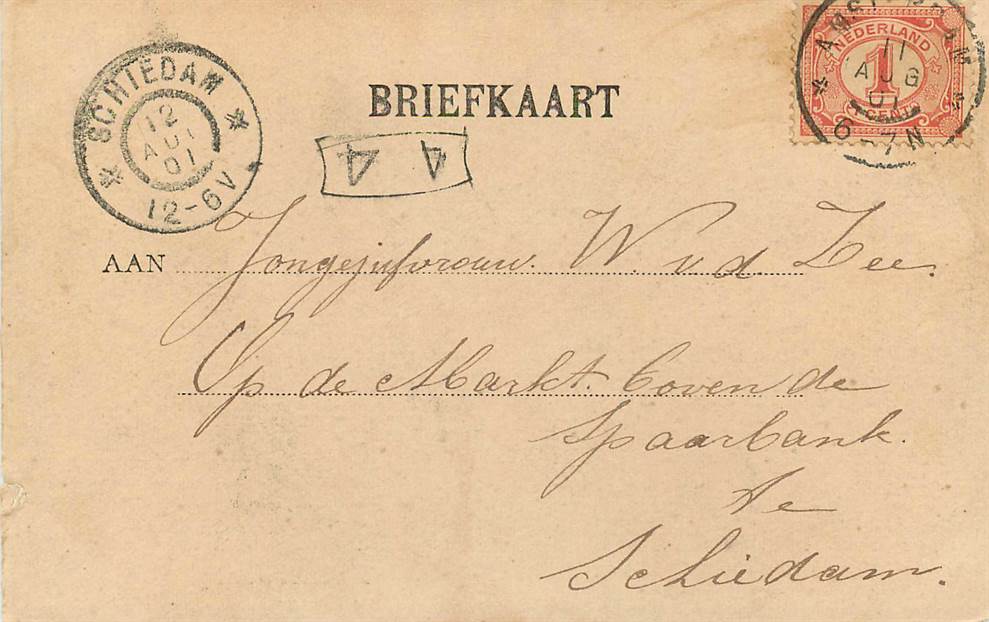 SCHIEDAM
12
AU
01
12-6V
BRIEFKAART
AMSTERDAM
11
AUG
01
6-7N
NEDERLAND
1
CENT
4 4
AAN Jongejufvrouw. W. v. d. Zee.
Op de Markt. boven de
Spaarbank.
te
Schiedam.